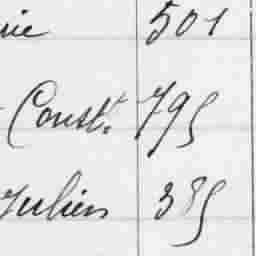 501
Const. 795
Julien 385